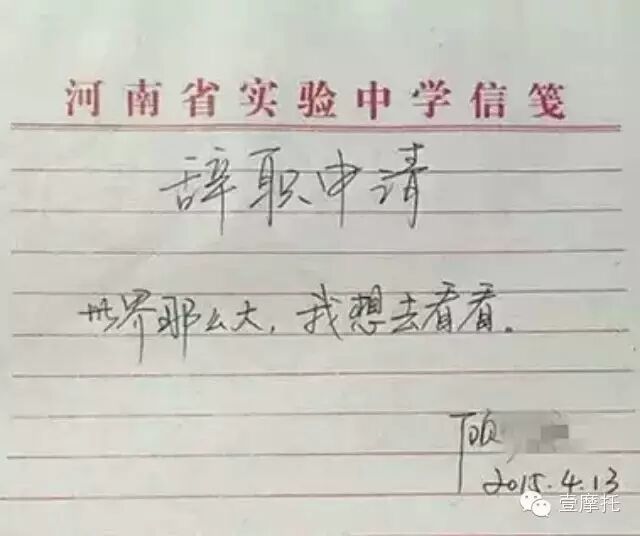 河南省实验中学信笺
辞职申请
世界那么大，我想去看看。
顾
2015.4.13
壹摩托